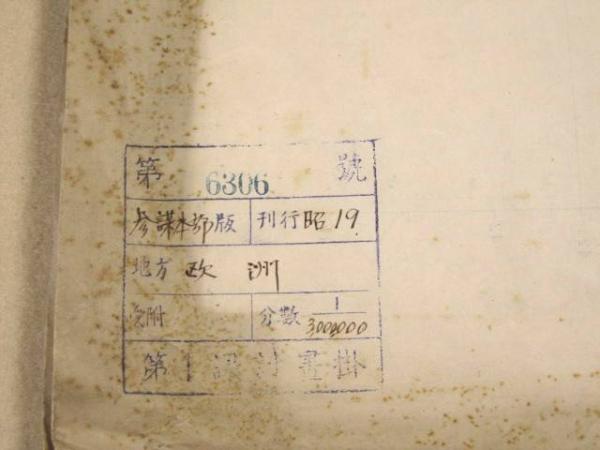 第 6306 號
参謀本部版 刊行昭19.
地方 欧 洲
受附 分數 1/3,000,000
第一 計畫掛